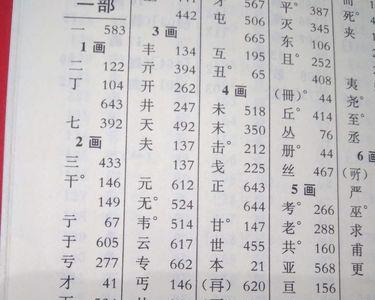 一部
一 583
1 画
二 122
丁 104
643
七 392
2 画
三 433
干° 146
149
亍 67
于 605
亏 277
才 41
442
3 画
丰 134
亓 394
开 262
井 247
天 492
夫 137
137
元 612
无° 524
韦° 514
云 617
专 662
丐 146
567
屯 506
665
互 195
丑° 65
4 画
未 518
末 350
击° 212
戋 225
正 643
644
甘° 147
世 455
本 21
(再) 620
平° 387
灭 345
东 106
且° 252
408
(冊)° 44
丘° 414
丛 76
册° 44
丝 467
5 画
考° 266
老° 288
共° 160
亚 568
亘 156
死°
夹
夷
尧°
至°
丞
6 画
严
巫°
求
甫
更